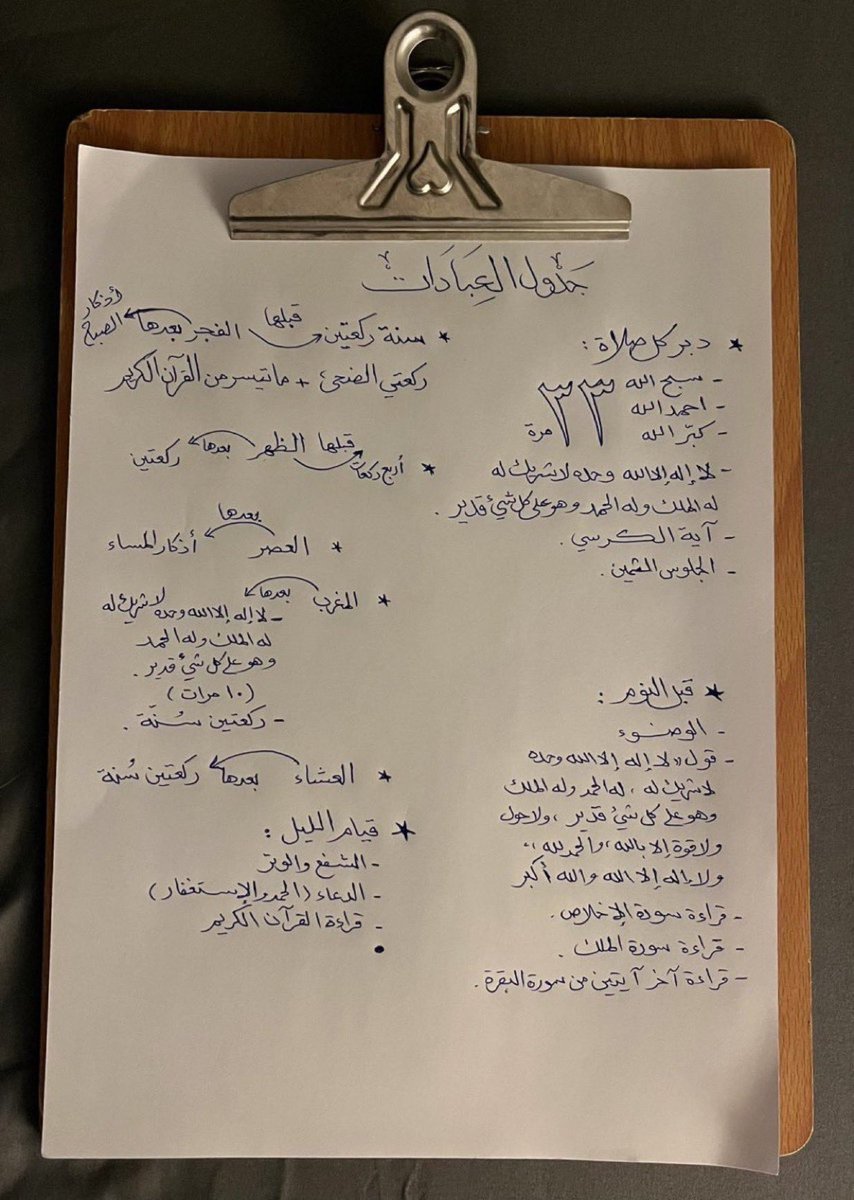 جَدْوَل العِبَادَات
★ دبر كل صلاة :
- سبح الله
- احمد الله
- كبّر الله
٣٣ مرة
- لا إله إلا الله وحده لا شريك له
له الملك وله الحمد وهو على كل شيئ قدير .
- آية الكرسي .
- الجلوس الثمين .
★ قبل النوم :
- الوضوء
- قول " لا إله إلا الله وحده
لا شريك له ، له الحمد وله الملك
وهو على كل شيئ قدير ، ولا حول
ولا قوة إلا بالله ، والحمد لله ،
ولا إله إلا الله والله أكبر
- قراءة سورة الإخلاص .
- قراءة سورة الملك .
- قراءة آخر آيتين من سورة البقرة .
★ سنة ركعتين قبلها الفجر بعدها أذكار الصبح
ركعتي الضحى + ما تيسر من القرآن الكريم
★ أربع ركعات قبلها الظهر بعدها ركعتين
★ العصر بعدها أذكار المساء
★ المغرب بعدها
- لا إله إلا الله وحده لا شريك له
له الملك وله الحمد
وهو على كل شيئ قدير .
(١٠ مرات)
- ركعتين سُنّة .
★ العشاء بعدها ركعتين سُنة
★ قيام الليل :
- الشفع والوتر
- الدعاء (الحمد والإستغفار)
- قراءة القرآن الكريم